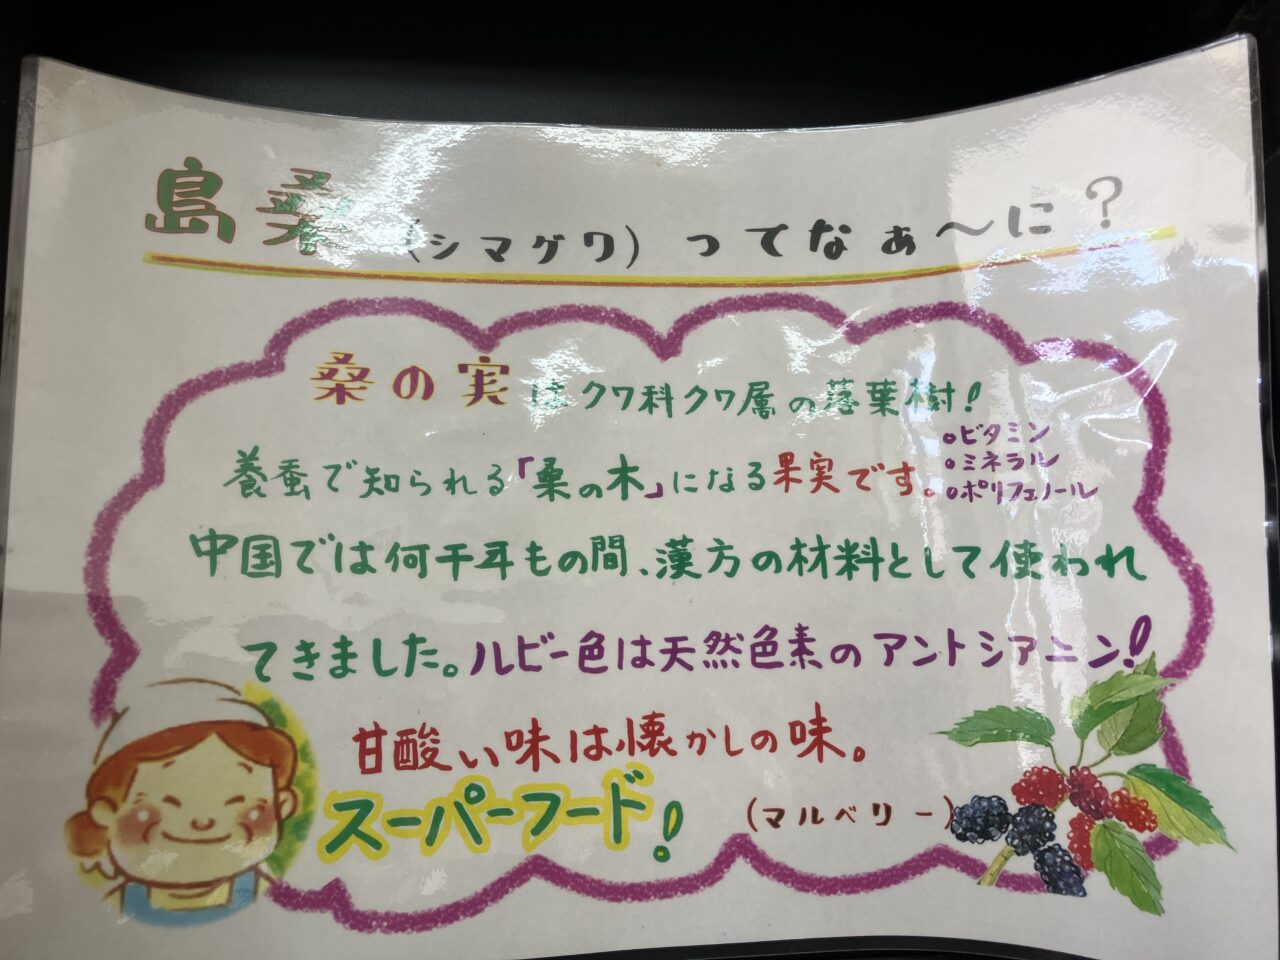 島桑(シマグワ)ってなぁ〜に?
桑の実はクワ科クワ属の落葉樹!
養蚕で知られる「桑の木」になる果実です。
・ビタミン
・ミネラル
・ポリフェノール
中国では何千年もの間、漢方の材料として使われ
てきました。ルビー色は天然色素のアントシアニン!
甘酸い味は懐かしの味。
スーパーフード!
(マルベリー)